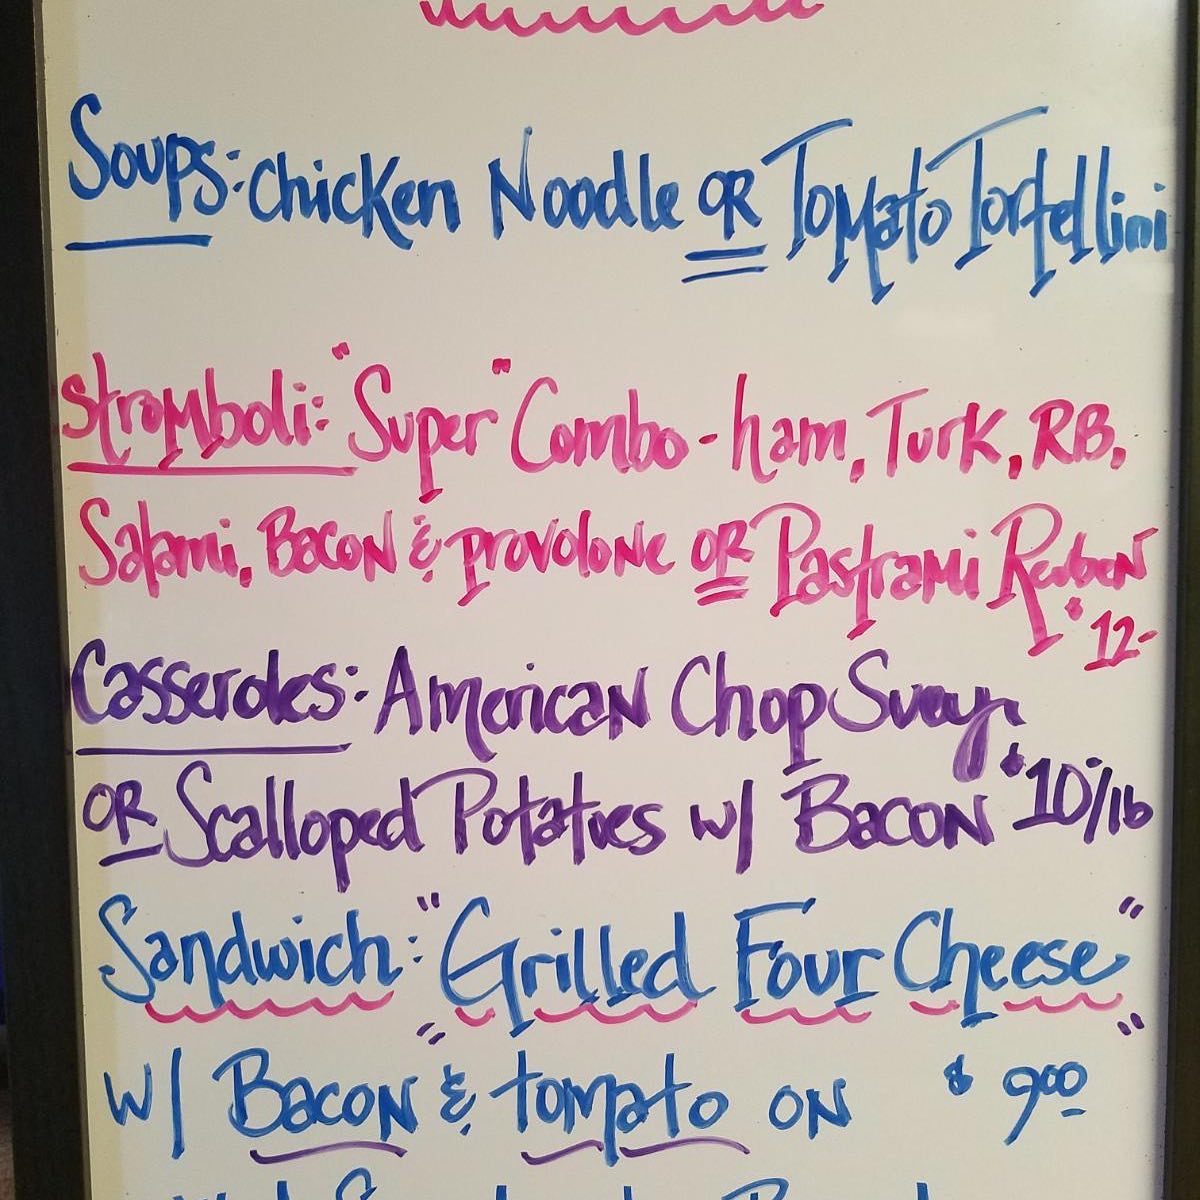 Soups: Chicken Noodle OR Tomato Tortellini
Stromboli: "Super" Combo - ham, Turk, RB,
Salami, Bacon & provolone OR Pastrami Reuben
$12-
Casseroles: American Chop Suey,
OR Scalloped Potatoes w/ Bacon $10/lb
Sandwich: "Grilled Four Cheese"
w/ "Bacon & tomato on $9.00"